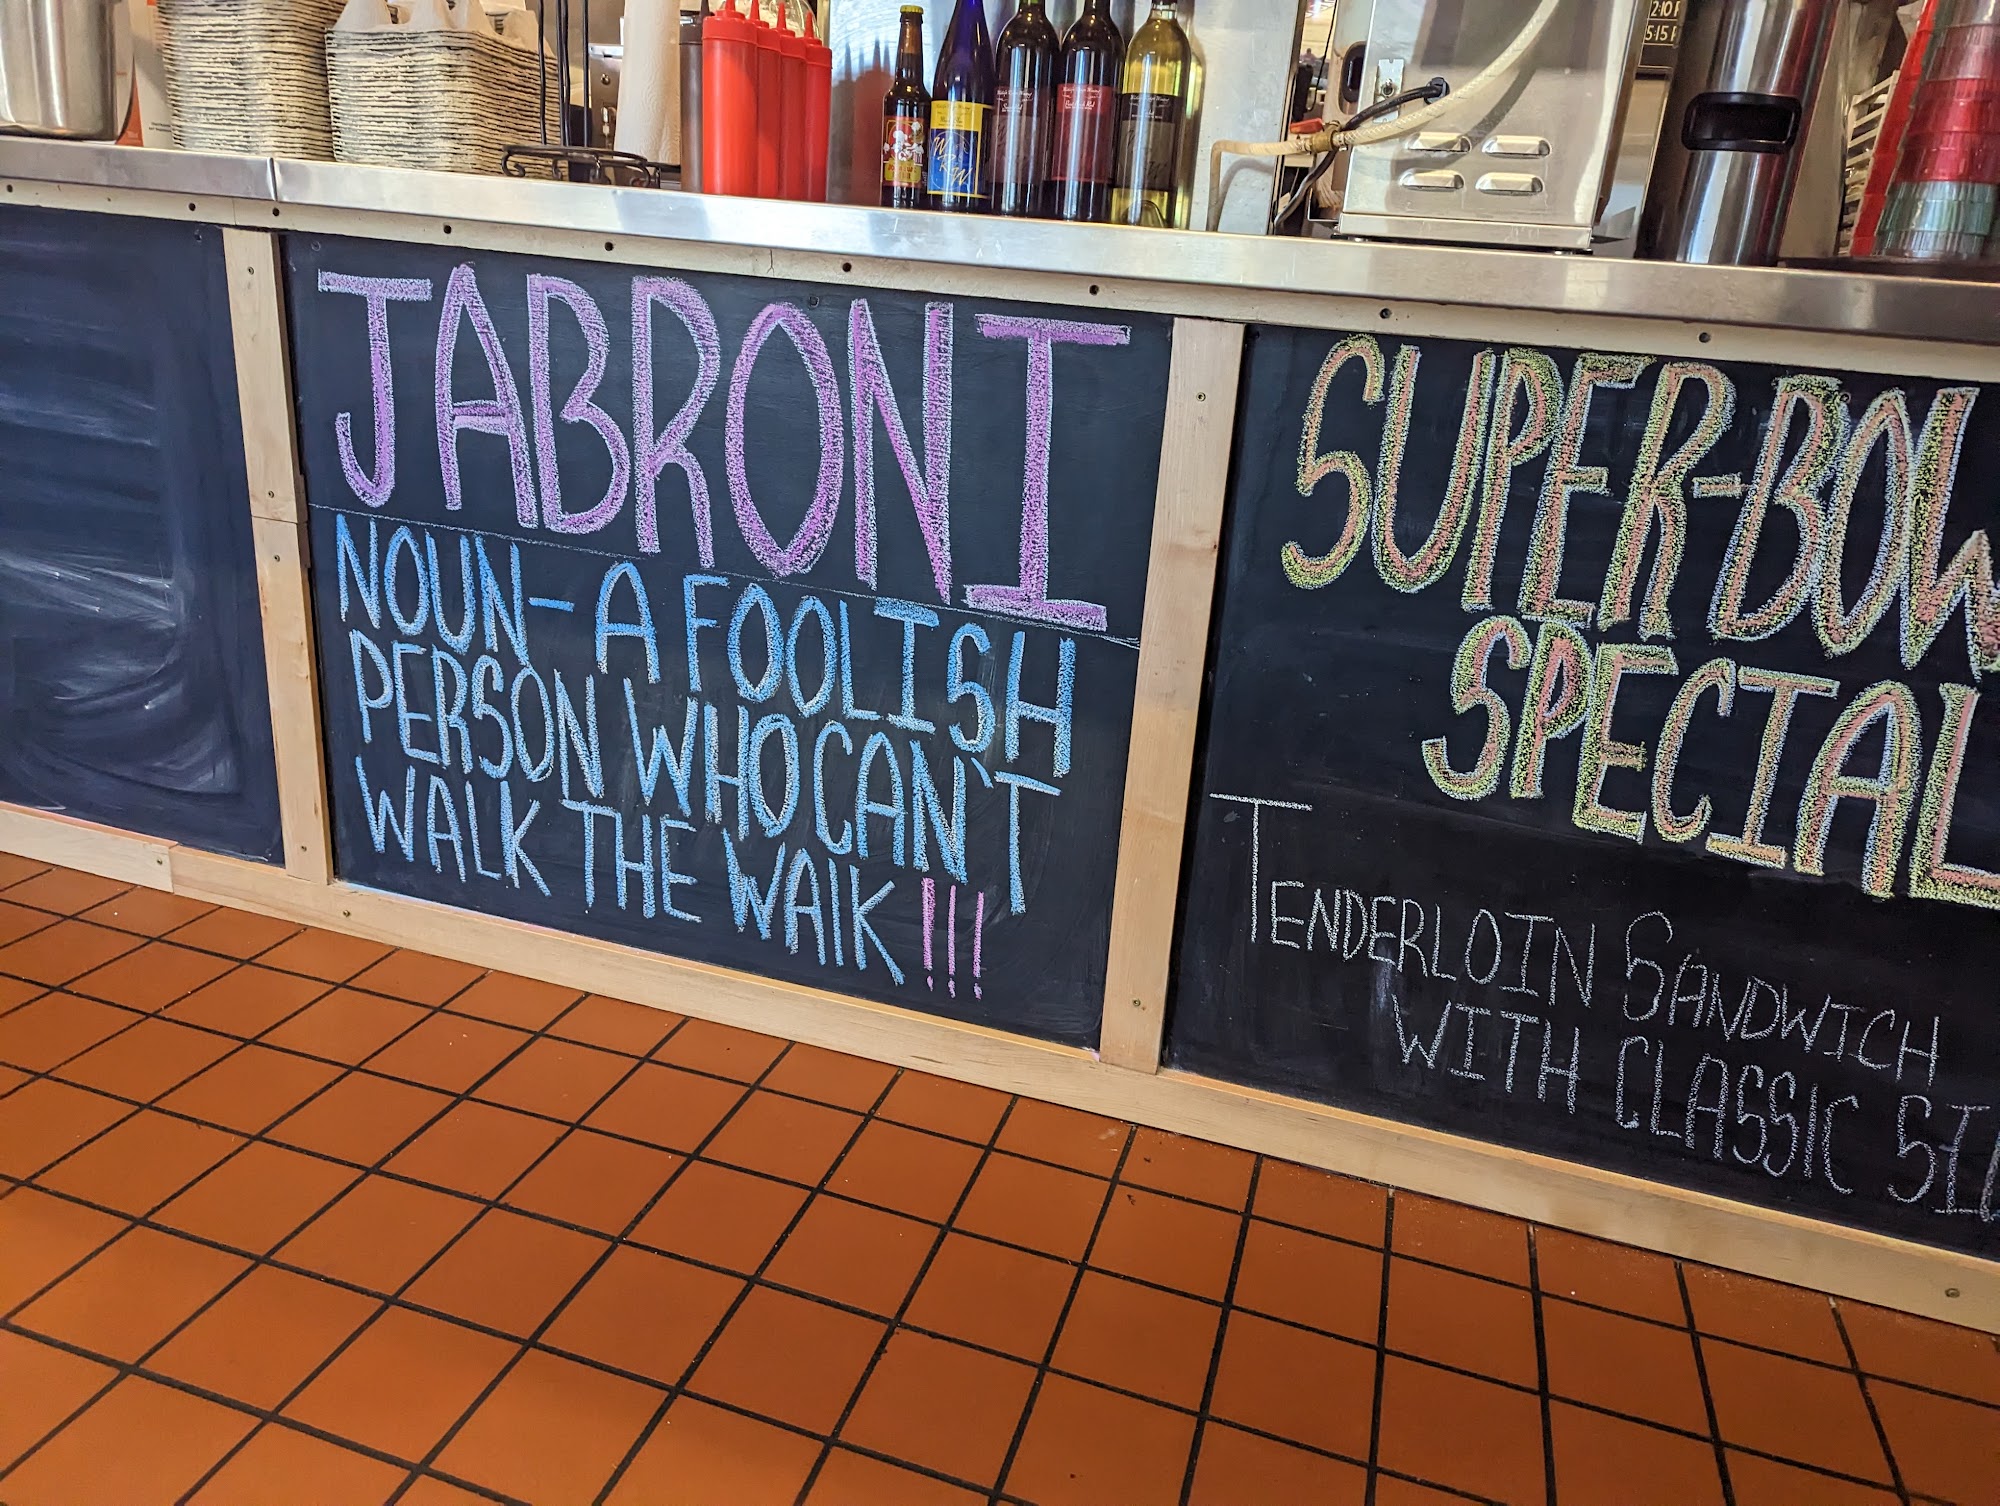 JABRONI
NOUN-A FOOLISH
PERSON WHO CAN'T
WALK THE WALK!!!
SUPER-BOW
SPECIAL
TENDERLOIN SANDWICH
WITH CLASSIC